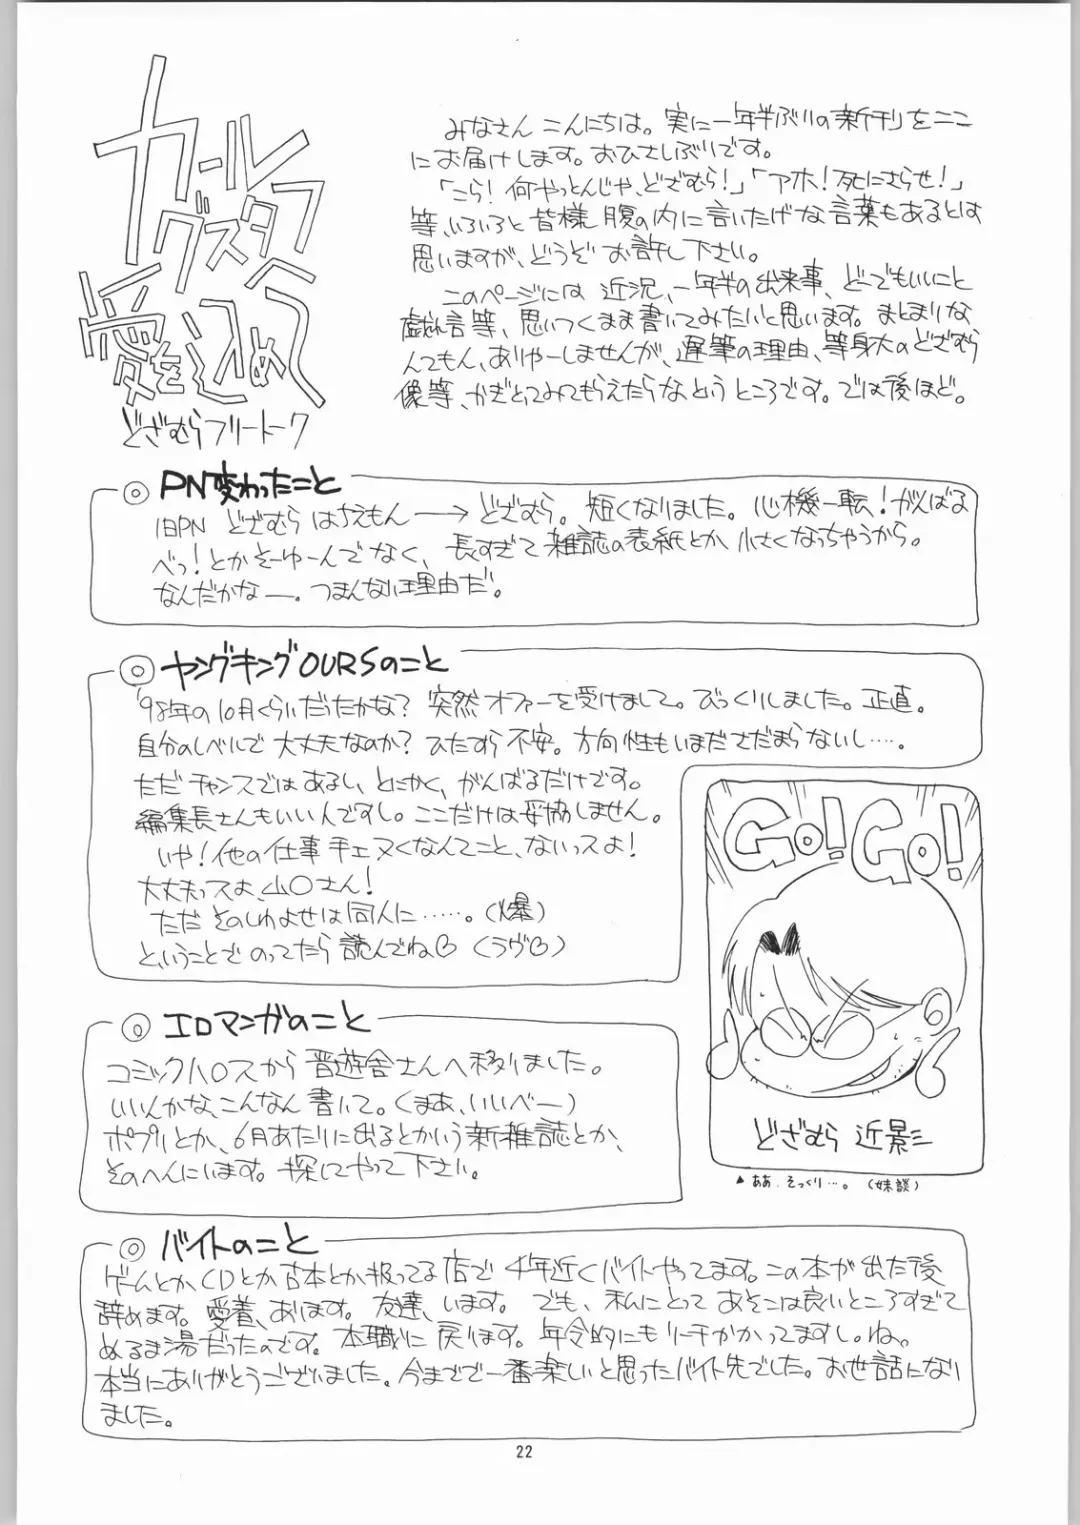 カールグスタフ
愛を込めて
どざむらフリートーク
みなさん こんにちは。実に一年半ぶりの新刊をここ
にお届けします。おひさしぶりです。
「こら!何やっとんじゃ、どざむら!」「アホ!死にさらせ!」
等、いろいろと皆様、腹の内に言いたげな言葉もあるとは
思いますが、どうぞ お許し下さい。
このページには 近況、一年半の出来事、どーでもいいこと
戯れ言等、思いつくまま書いてみたいと思います。まとまりな
んてもん、ありゃーしませんが、遅筆の理由、等身大のどざむら
像等、かぎとってみてもらえたらなというところです。では後ほど。
◎ PN変わったこと
旧PN どざむら はちえもん ─→ どざむら。短くなりました。心機一転!がんばる
べっ!とかそーゆーんでなく、長すぎて雑誌の表紙とか 小さくなっちゃうから。
なんだかなー。つまんない理由だ。
◎ ヤングキングOURSのこと
'98年の10月くらいだったかな?突然オファーを受けまして。びっくりしました。正直。
自分のレベルで大丈夫なのか?ひたすら不安。方向性もいまださだまらないし‥‥。
ただ チャンスではあるし、とにかく、がんばるだけです。
編集長さんもいい人ですし。ここだけは妥協しません。
いや!他の仕事 手ェヌくなんてこと、ないっスよ!
大丈夫っスよ、山○さん!
ただ そのしわよせは同人に‥‥‥。(爆)
ということで のってたら 読んでね♡ (ラヴ♡)
Go! Go!
どざむら 近影
▲ ああ、そっくり‥‥。(妹談)
◎ エロマンガのこと
コミックハウスから 晋遊舎さんへ移りました。
いいんかな、こんなん 書いて。(まあ、いいべー)
ポプリとか、6月あたりに出るとかいう新雑誌とか、
そのへんにいます。探してやって下さい。
◎ バイトのこと
ゲームとかCDとか古本とか扱ってる店で 4年近くバイトやってます。この本が出た後
辞めます。愛着、あります。友達、います。でも、私にとって あそこは良いところすぎて
ぬるま湯だったのです。本職に 戻ります。年令的にもリーチかかってますし。ね。
本当にありがとうございました。今までで一番楽しいと思ったバイト先でした。お世話になり
ました。
22